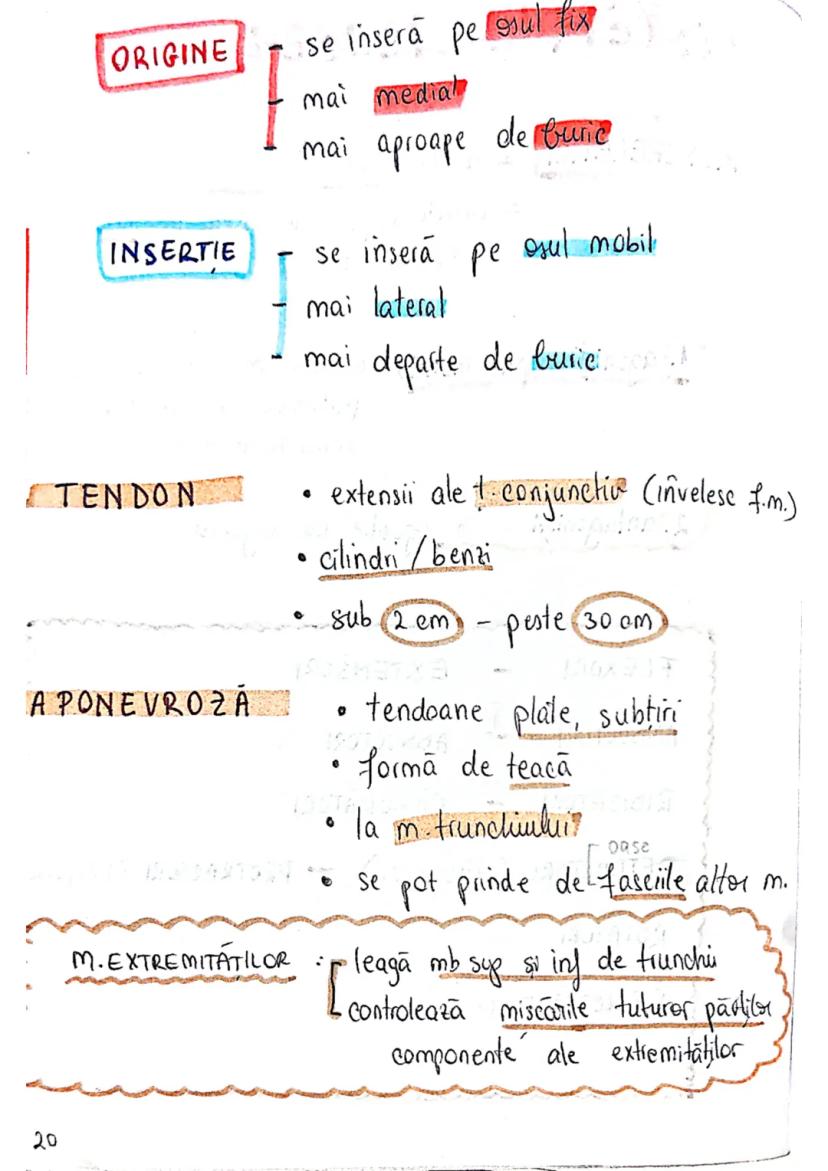 ORIGINE - se inseră pe osul fix
- mai medial
- mai aproape de buric
INSERȚIE - se inseră pe osul mobil
- mai lateral
- mai departe de buric
TENDON • extensii ale ț. conjunctiv (învelesc f.m.)
• cilindri / benzi
• sub 2 cm - peste 30 cm
APONEVROZĂ • tendoane plate, subțiri
• formă de teacă
• la m. trunchiului
oase
• se pot prinde de fasciile altor m.
M. EXTREMITĂȚILOR : leagă mb sup și inf de trunchi
controlează mișcările tuturor părților
componente ale extremităților
20